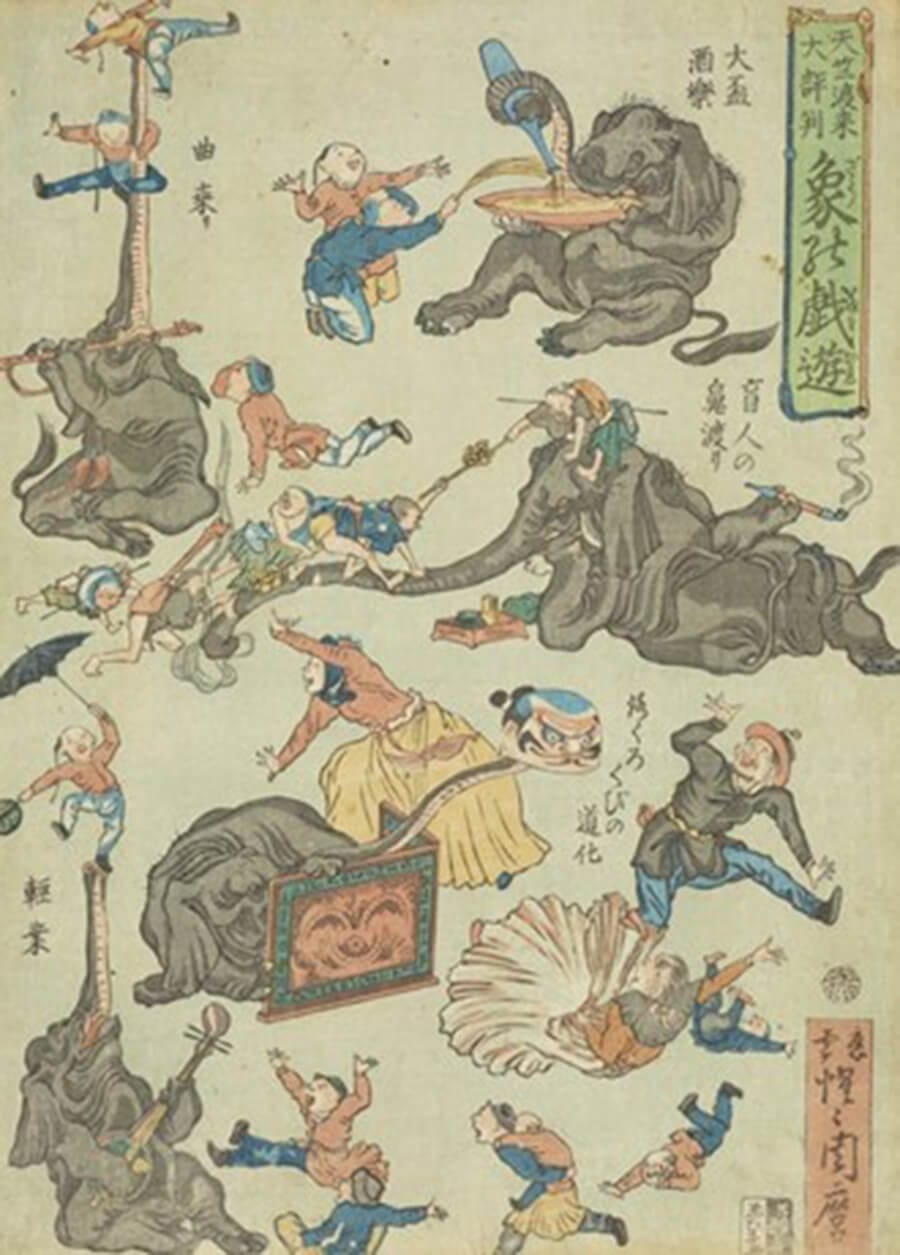 天竺渡来
大評判
象の戯遊
大盃
酒楽
曲来り
盲人の
鬼渡り
ろくろ
くびの
道化
軽業
應需
惺々周麿